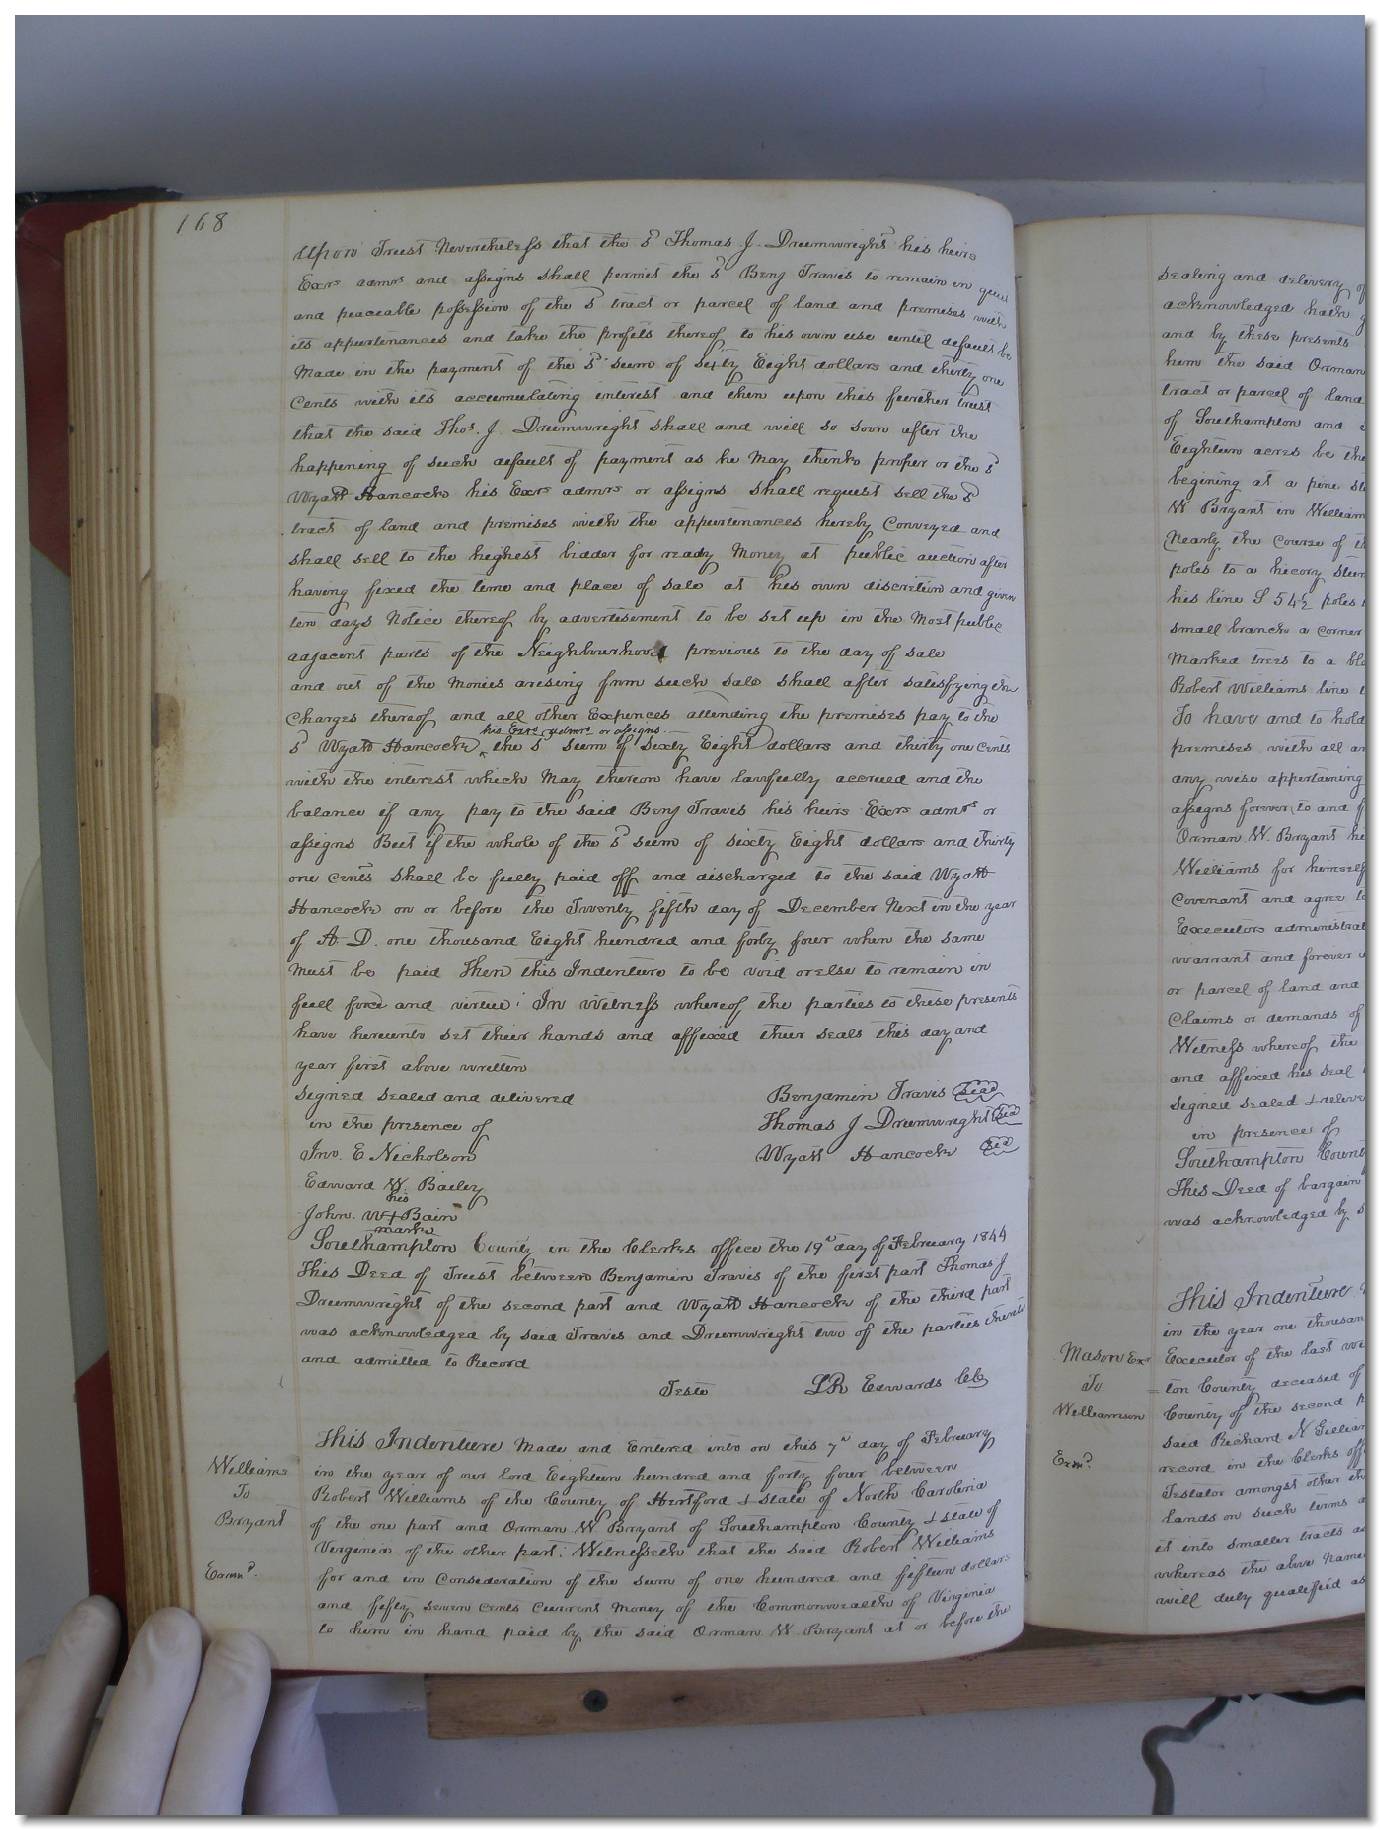 168
Upon Trust Nevertheless that the sd Thomas J. Drumwright his heirs
Exrs admrs and assigns shall permit the sd Benj Travis to remain in quiet
and peaceable possession of the sd tract or parcel of land and premises with
its appurtenances and take the profits thereof to his own use until default be
Made in the payment of the sd sum of sixty Eight dollars and thirty one
Cents with its accumulating interest and then upon this further trust
that the said Thos. J. Drumwright shall and will so soon after the
happening of such default of payment as he May think proper or the sd
Wyatt Hancock his Exrs admrs or assigns shall request sell the sd
tract of land and premises with the appurtenances hereby Conveyed and
shall sell to the highest bidder for ready Money at public auction after
having fixed the time and place of sale at his own discretion and given
ten days Notice thereof by advertisement to be set up in the Most public
adjacent parts of the Neighbourhood previous to the day of sale
and out of the Monies arising from such sale shall after satisfying the
Charges thereof and all other Expences attending the premises pay to the
his Exrs admrs or assigns
sd Wyatt Hancock ^ the sd sum of sixty Eight dollars and thirty one cents
with the interest which May thereon have lawfully accrued and the
balance if any pay to the said Benj Travis his heirs Exrs admrs or
assigns But if the whole of the sd sum of sixty Eight dollars and thirty
one cents shall be fully paid off and discharged to the said Wyatt
Hancock on or before the Twenty fifth day of December Next in the year
of A. D. one thousand Eight hundred and forty four when the same
Must be paid Then this Indenture to be void or else to remain in
full force and virtue: In Witness whereof the parties to these presents
have hereunto set their hands and affixed their seals this day and
year first above written
Signed sealed and delivered Benjamin Travis Seal
in the presence of Thomas J Drumwright Seal
Jno. E Nicholson Wyatt Hancock Seal
Edward W. Bailey
his
John. W + Bain
mark
Southampton County in the Clerks office the 19th day of February 1844
This Deed of Trust between Benjamin Travis of the first part Thomas J
Drumwright of the second part and Wyatt Hancock of the third part
was acknowledged by said Travis and Drumwright two of the parties thereto
and admitted to Record
Teste LR Edwards CC
This Indenture Made and Entered into on this 7th day of February
Williams
To
Bryant
Examd.
in the year of our Lord Eighteen hundred and forty four between
Robert Williams of the County of Hertford & state of North Carolina
of the one part and Orman W Bryant of Southampton County & state of
Virginia of the other part: Witnesseth that the said Robert Williams
for and in Consideration of the sum of one hundred and fifteen dollars
and fifty seven cents Current Money of the Commonwealth of Virginia
to him in hand paid by the said Orman W Bryant at or before the
sealing and delivery of
acknowledged hath
and by these presents
him the said Orman
tract or parcel of land
of Southampton and
Eighteen acres be the
begining at a pine
W Bryant in William
Nearly the course of
poles to a hicory
his line S 54½ poles
small branch a corner
Marked trees to a
Robert Williams line
To have and to hold
premises with all
any wise appertaining
assigns forever, to and
Orman W. Bryant
Williams for himself
Covenant and agree
Executors
warrant and forever
or parcel of land and
Claims or demands of
Witness whereof the
and affixed his seal
Signed sealed &
in presence of
Southampton
This Deed of bargain
was acknowledged by
This Indenture
in the year one
Mason Exr
To
Williamson
Exmd.
Executor of the last
ton County deceased of
County of the second
said Richard N
record in the Clerks
Testator amongst other
lands on such terms
it into smaller tracts
whereas the above
will duly qualified as